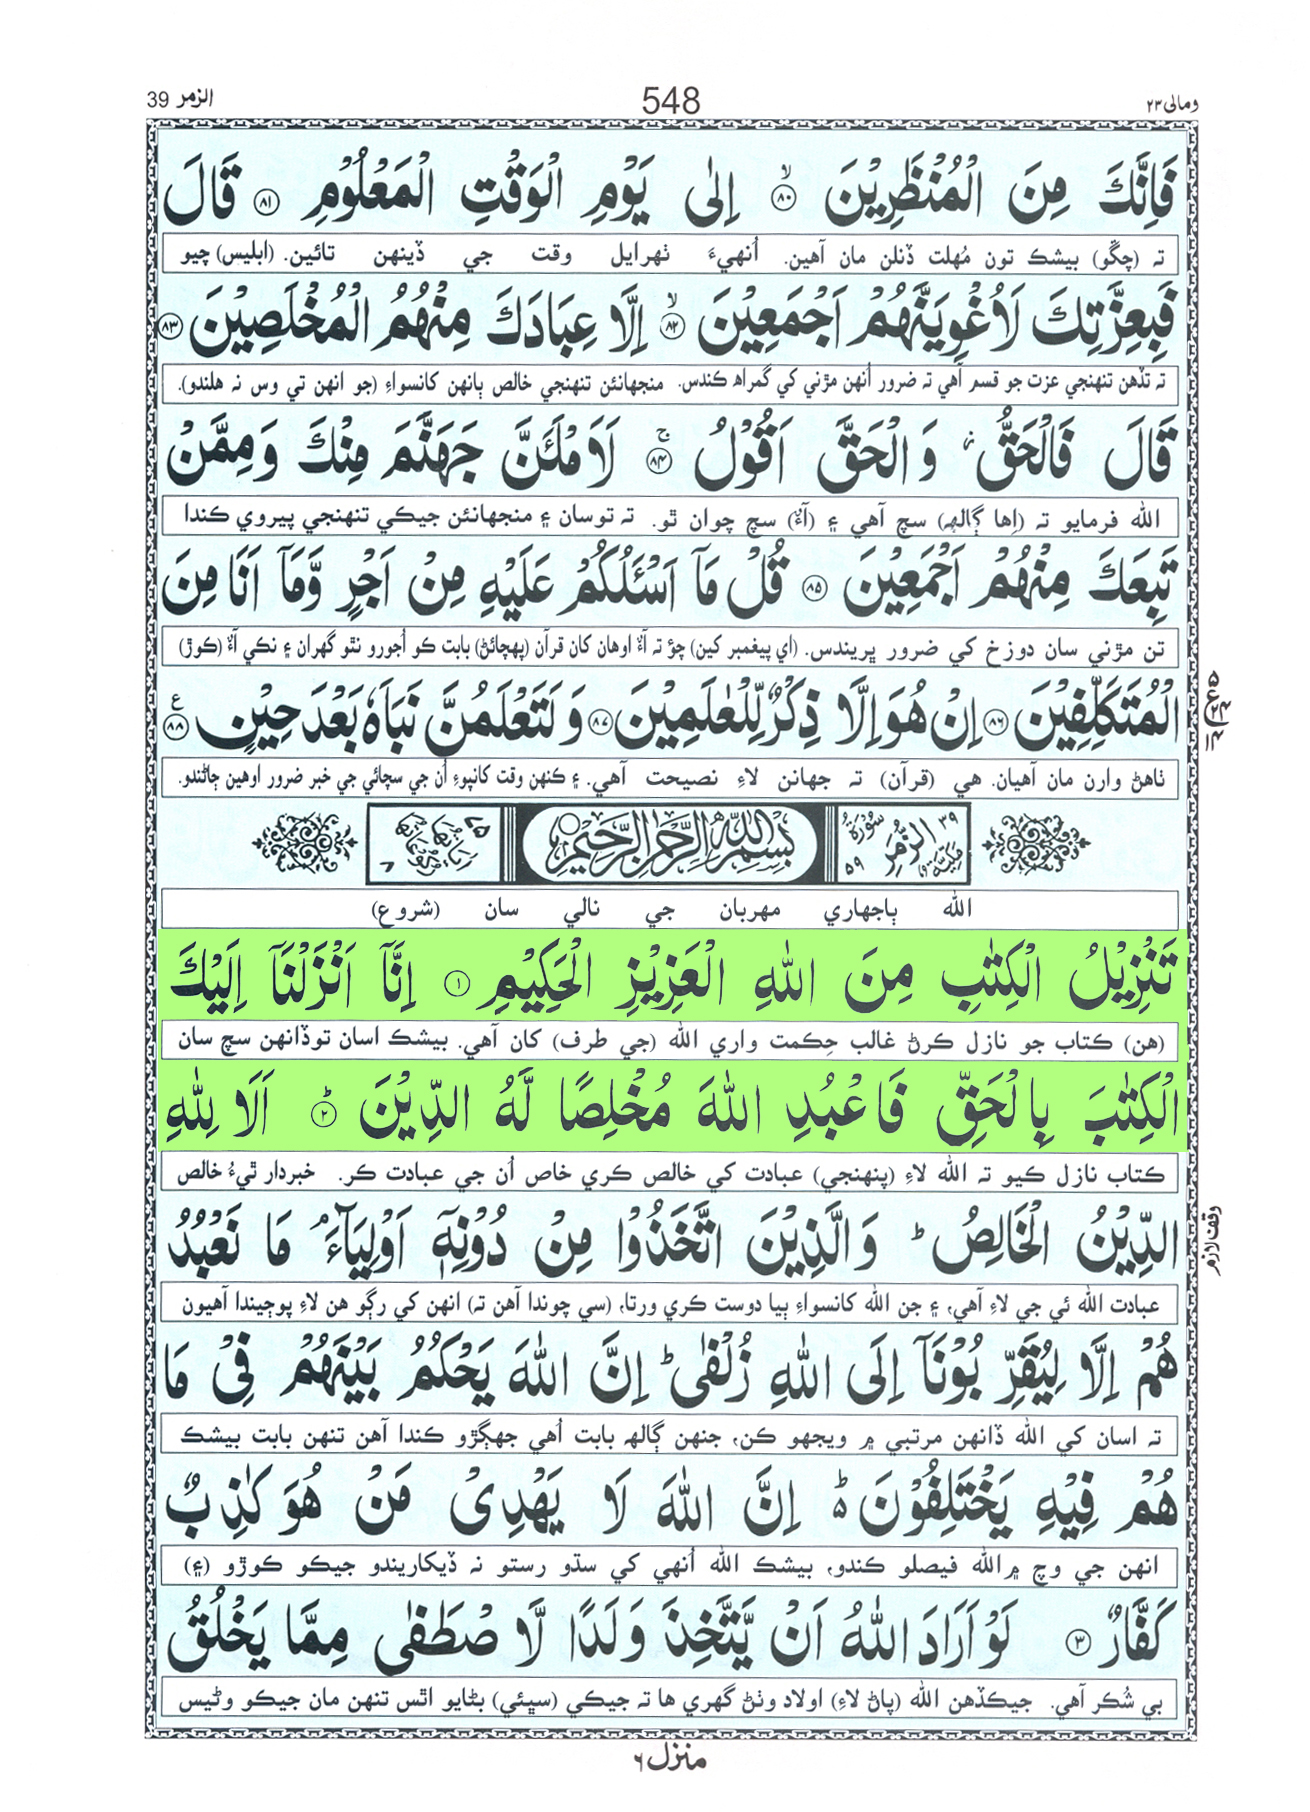 الزمر 39
548
ومالی ۲۳
فَاِنَّكَ مِنَ الْمُنْظَرِيْنَ ۙ﴿۸۰﴾ اِلٰى يَوْمِ الْوَقْتِ الْمَعْلُوْمِ ﴿۸۱﴾ قَالَ
ته (چڱو) بيشڪ تون مُهلت ڏنلن مان آهين. اُنهيءَ ٺهرايل وقت جي ڏينهن تائين. (ابليس) چيو
فَبِعِزَّتِكَ لَاُغْوِيَنَّهُمْ اَجْمَعِيْنَ ۙ﴿۸۲﴾ اِلَّا عِبَادَكَ مِنْهُمُ الْمُخْلَصِيْنَ ﴿۸۳﴾
ته تڏهن تنهنجي عزت جو قسم آهي ته ضرور اُنهن مڙني کي گمراهه ڪندس. منجهانئن تنهنجي خالص ٻانهن کانسواءِ (جو انهن تي وس نه هلندو).
قَالَ فَالْحَقُّ ؗ وَالْحَقَّ اَقُوْلُ ۚ﴿۸۴﴾ لَاَمْلَـَٔنَّ جَهَنَّمَ مِنْكَ وَمِمَّنْ
الله فرمايو ته (اِها ڳالهه) سچ آهي ۽ (آءٌ) سچ چوان ٿو. ته توسان ۽ منجهانئن جيڪي تنهنجي پيروي ڪندا
تَبِعَكَ مِنْهُمْ اَجْمَعِيْنَ ﴿۸۵﴾ قُلْ مَآ اَسْـَٔلُكُمْ عَلَيْهِ مِنْ اَجْرٍ وَّمَآ اَنَا مِنَ
تن مڙني سان دوزخ کي ضرور ڀريندس. (اي پيغمبر کين) چؤ ته آءٌ اوهان کان قرآن (پهچائڻ) بابت ڪو اُجورو نٿو گهران ۽ نڪي آءٌ (ڪوڙ)
الْمُتَكَلِّفِيْنَ ﴿۸۶﴾ اِنْ هُوَ اِلَّا ذِكْرٌ لِّلْعٰلَمِيْنَ ﴿۸۷﴾ وَلَتَعْلَمُنَّ نَبَاَهٗ بَعْدَ حِيْنٍ ﴿۸۸﴾ ع
ٺاهڻ وارن مان آهيان. هي (قرآن) ته جهانن لاءِ نصيحت آهي. ۽ ڪنهن وقت کانپوءِ اُن جي سچائي جي خبر ضرور اوهين ڄاڻندو.
۳۹ سُوْرَةُ الزُّمَرِ مَكِّيَّةٌ ۵۹
بِسْمِ اللهِ الرَّحْمٰنِ الرَّحِيْمِ
اٰيَاتُهَا ۷۵ رُكُوْعَاتُهَا ۸
الله ٻاجهاري مهربان جي نالي سان (شروع)
تَنْزِيْلُ الْكِتٰبِ مِنَ اللهِ الْعَزِيْزِ الْحَكِيْمِ ﴿۱﴾ اِنَّآ اَنْزَلْنَآ اِلَيْكَ
(هن) ڪتاب جو نازل ڪرڻ غالب حِڪمت واري الله (جي طرف) کان آهي. بيشڪ اسان توڏانهن سچ سان
الْكِتٰبَ بِالْحَقِّ فَاعْبُدِ اللهَ مُخْلِصًا لَّهُ الدِّيْنَ ؕ﴿۲﴾ اَلَا لِلّٰهِ
ڪتاب نازل ڪيو ته الله لاءِ (پنهنجي) عبادت کي خالص ڪري خاص اُن جي عبادت ڪر. خبردار ٿيءُ خالص
الدِّيْنُ الْخَالِصُ ؕ وَالَّذِيْنَ اتَّخَذُوْا مِنْ دُوْنِهٖٓ اَوْلِيَآءَ ۘ مَا نَعْبُدُ
وقف لازم
عبادت الله ئي جي لاءِ آهي، ۽ جن الله کانسواءِ ٻيا دوست ڪري ورتا، (سي چوندا آهن ته) انهن کي رڳو هن لاءِ پوڄيندا آهيون
هُمْ اِلَّا لِيُقَرِّبُوْنَآ اِلَى اللهِ زُلْفٰى ؕ اِنَّ اللهَ يَحْكُمُ بَيْنَهُمْ فِيْ مَا
ته اسان کي الله ڏانهن مرتبي ۾ ويجهو ڪن، جنهن ڳالهه بابت اُهي جهڳڙو ڪندا آهن تنهن بابت بيشڪ
هُمْ فِيْهِ يَخْتَلِفُوْنَ ؕ۬ اِنَّ اللهَ لَا يَهْدِيْ مَنْ هُوَ كٰذِبٌ
انهن جي وچ ۾ الله فيصلو ڪندو، بيشڪ الله اُنهي کي سڌو رستو نه ڏيکاريندو جيڪو ڪوڙو (۽)
كَفَّارٌ ﴿۳﴾ لَوْ اَرَادَ اللهُ اَنْ يَّتَّخِذَ وَلَدًا لَّاصْطَفٰى مِمَّا يَخْلُقُ
بي شُڪر آهي. جيڪڏهن الله (پاڻ لاءِ) اولاد وٺڻ گهري ها ته جيڪي (سڀئي) بڻايو اٿس تنهن مان جيڪو وڻيس
منزل ۶